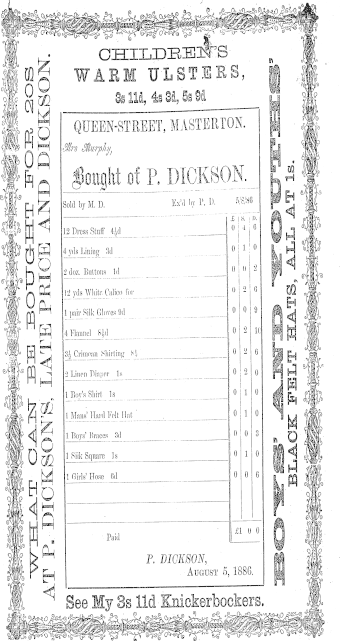 CHILDREN'S
WARM ULSTERS,
3s 11d, 4s 3d, 5s 9d
WHAT CAN BE BOUGHT FOR 20S
AT P. DICKSON'S, LATE PRICE AND DICKSON.
QUEEN-STREET, MASTERTON.
Mrs Murphy,
Bought of P. DICKSON.
Sold by M. D. Ex'd by P. D. 5/8/86
£ s. d.
12 Dress Stuff 4½d 0 4 6
4 yds Lining 3d 0 1 0
2 doz. Buttons 1d 0 0 2
12 yds White Calico for 0 2 6
1 pair Silk Gloves 9d 0 0 9
4 Flannel 8½d 0 2 10
3½ Crimean Shirting 0 2 6
2 Linen Diaper 1s 0 2 0
1 Boy's Shirt 1s 0 1 0
1 Mans' Hard Felt Hat 0 1 0
1 Boys' Braces 3d 0 0 3
1 Silk Square 1s 0 1 0
1 Girls' Hose 6d 0 0 6
Paid £1 0 0
P. DICKSON,
AUGUST 5, 1886.
BOYS' AND YOUTHS'
BLACK FELT HATS, ALL AT 1s.
See My 3s 11d Knickerbockers.